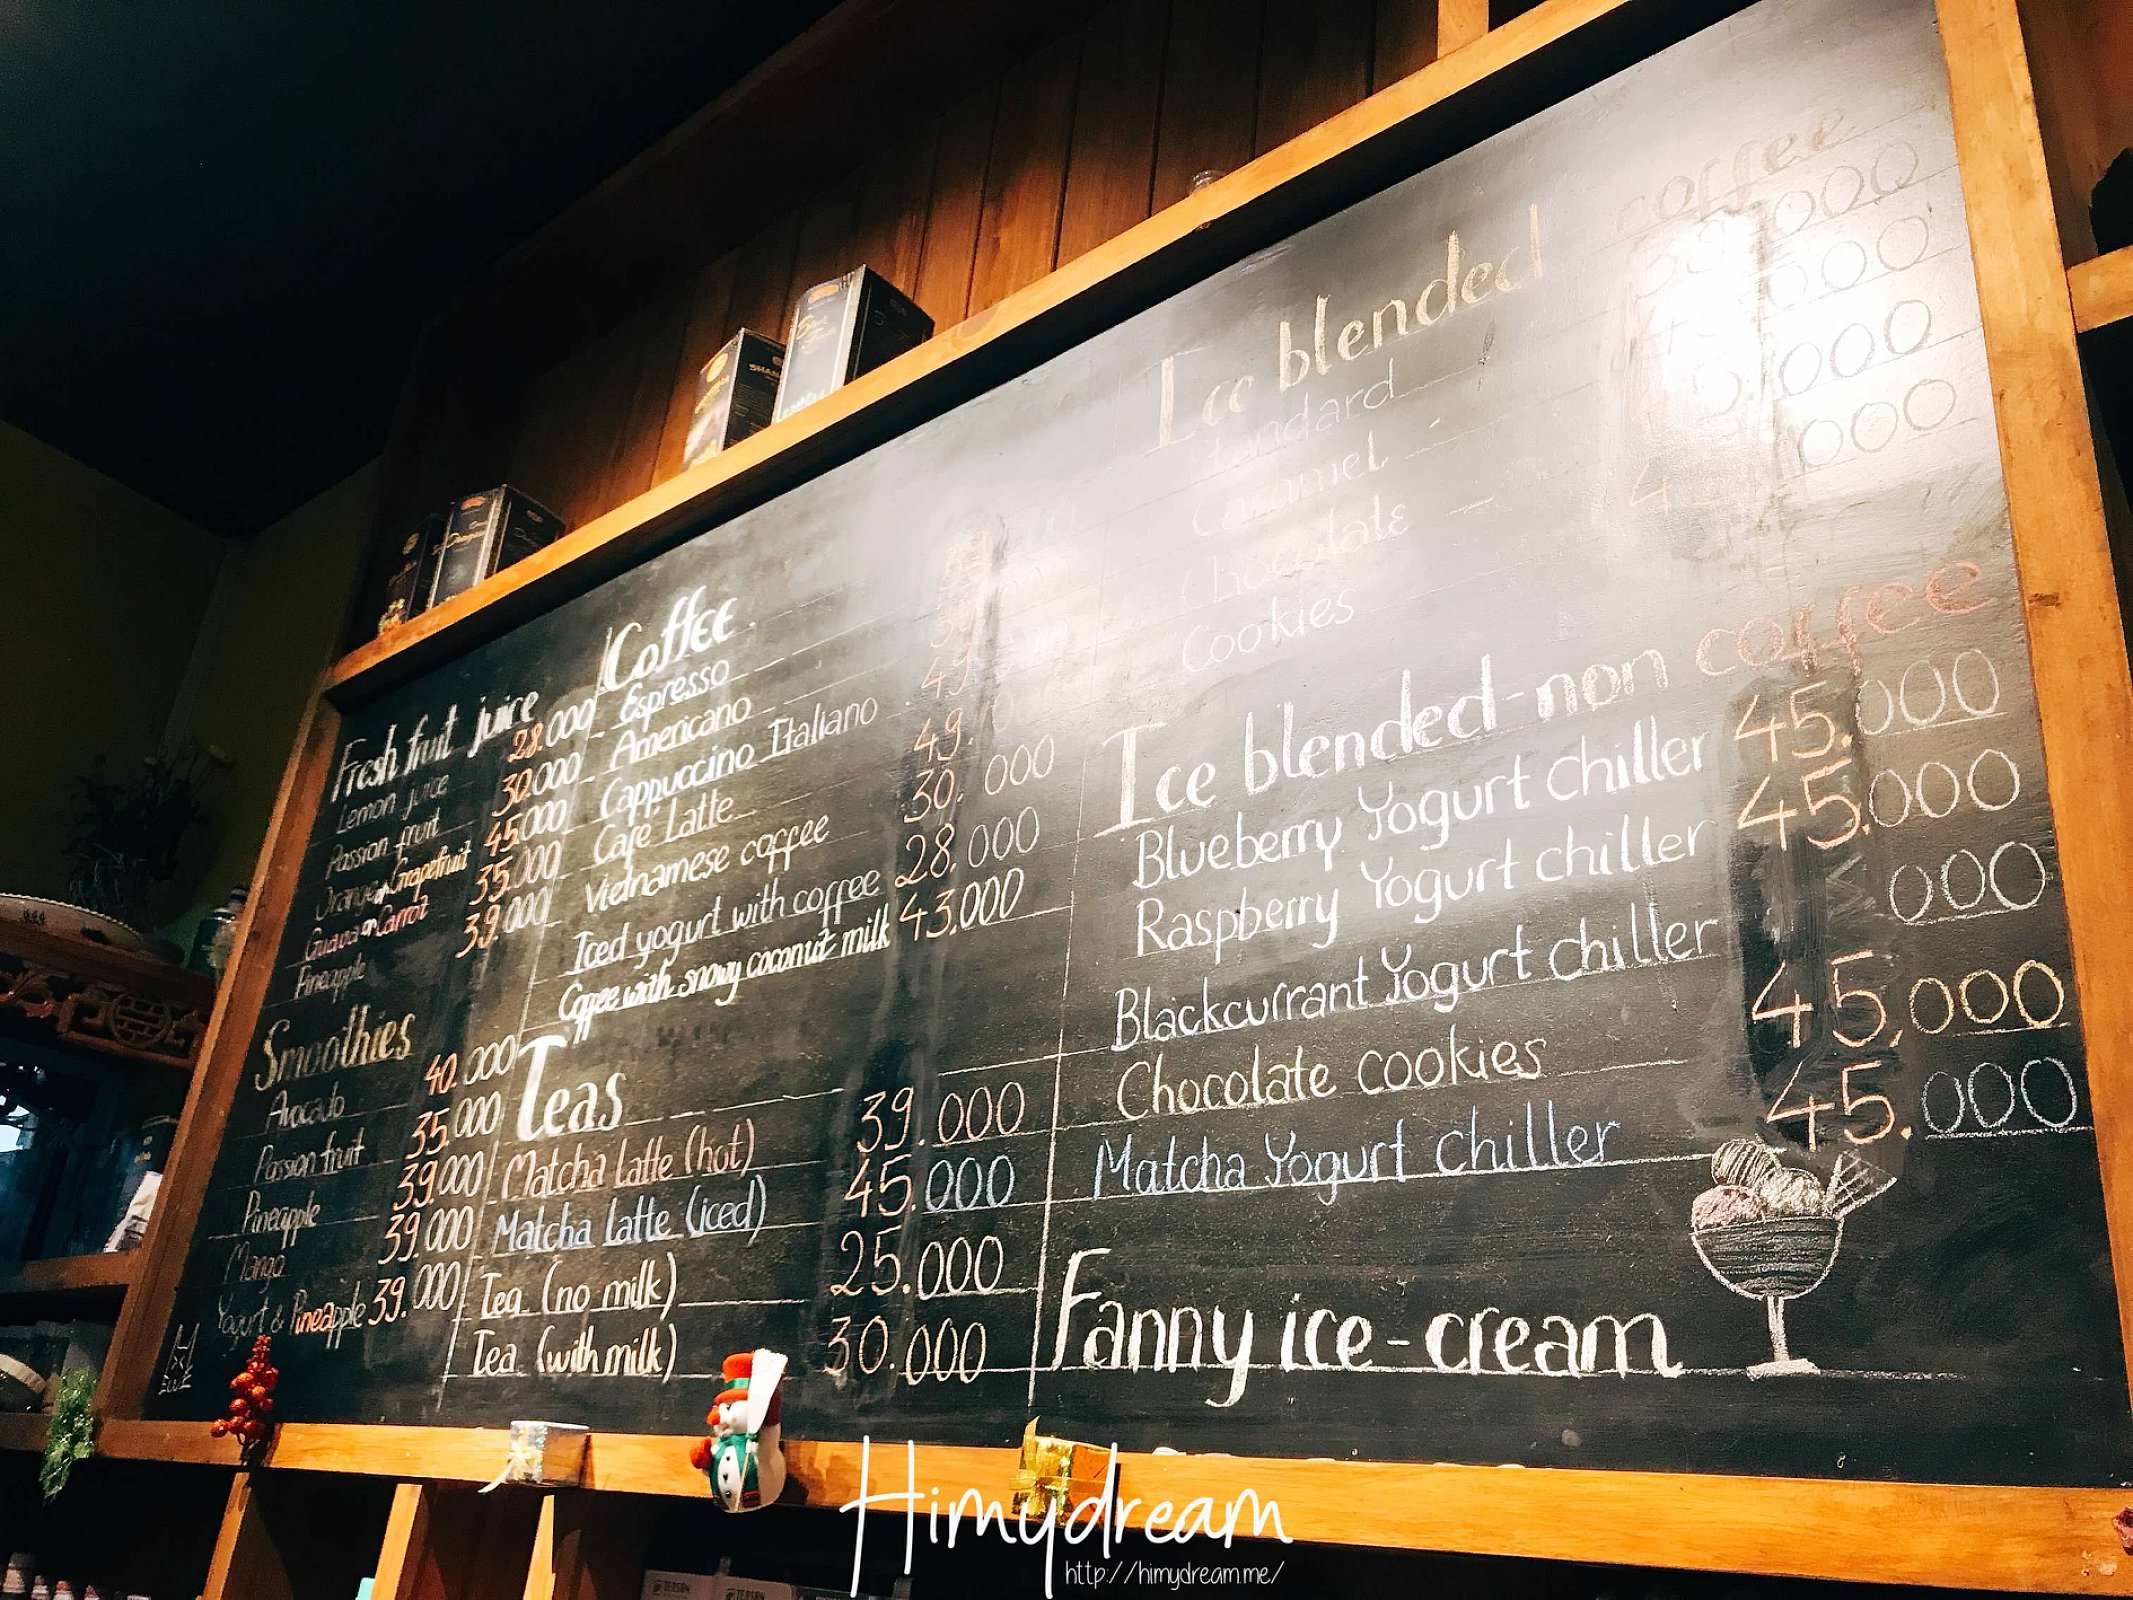 Fresh fruit juice
Lemon juice 28.000
Passion fruit 30.000
Orange or Grapefruit 45.000
Guava or Carrot 35.000
Pineapple 39.000
Smoothies
Avocado 40.000
Passion fruit 35.000
Pineapple 39.000
Mango 39.000
Yogurt & Pineapple 39.000
Coffee
Espresso
Americano
Cappuccino Italiano 49.
Cafe Latte 49.
Vietnamese coffee 30.000
Iced yogurt with coffee 28.000
Coffee with snowy coconut milk 43,000
Teas
Matcha latte (hot) 39.000
Matcha latte (iced) 45.000
Tea (no milk) 25.000
Tea (with milk) 30.000
Ice blended coffee
Standard
Caramel
Chocolate
Cookies
Ice blended-non coffee
Blueberry Yogurt chiller 45.000
Raspberry Yogurt chiller 45.000
Blackcurrant Yogurt chiller 000
Chocolate cookies 45,000
Matcha Yogurt chiller 45.000
Fanny ice-cream
Himydream
http://himydream.me/